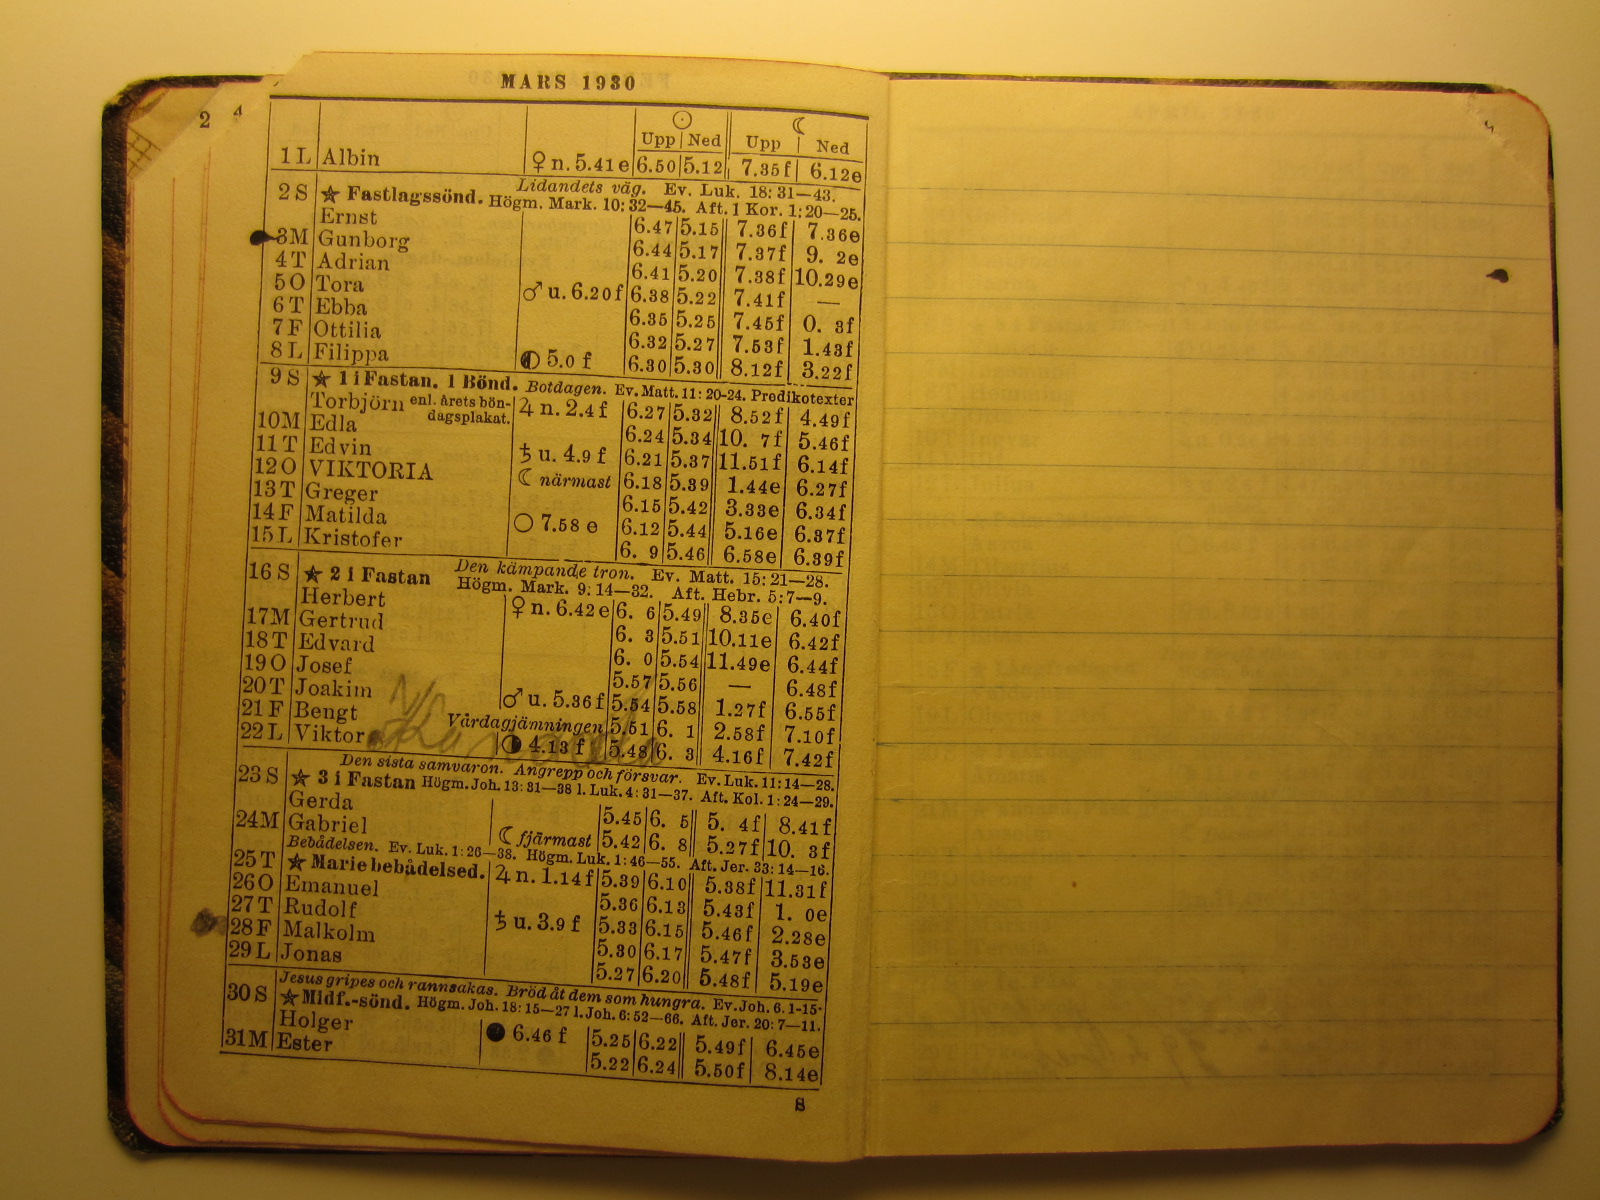 2 4
MARS 1930
☉ ☾
Upp Ned Upp Ned
1 L Albin ♀ n. 5.41 e 6.50 5.12 7.35f 6.12e
2 S ★ Fastlagssönd. Lidandets väg. Ev. Luk. 18: 31—43.
Högm. Mark. 10: 32—45. Aft. 1 Kor. 1: 20—25.
Ernst 6.47 5.15 7.36f 7.36e
3M Gunborg 6.44 5.17 7.37f 9. 2e
4 T Adrian 6.41 5.20 7.38f 10.29e
5 O Tora ♂ u. 6.20 f 6.38 5.22 7.41f —
6 T Ebba 6.35 5.25 7.45f 0. 3f
7 F Ottilia 6.32 5.27 7.53f 1.43f
8 L Filippa ◐ 5.0 f 6.30 5.30 8.12f 3.22f
9 S ★ 1 i Fastan. 1 Bönd. Botdagen. Ev. Matt. 11: 20-24. Predikotexter
Torbjörn enl. årets bön-dagsplakat. ♃ n. 2.4 f 6.27 5.32 8.52f 4.49f
10M Edla 6.24 5.34 10. 7f 5.46f
11 T Edvin ♄ u. 4.9 f 6.21 5.37 11.51f 6.14f
12 O VIKTORIA ☾ närmast 6.18 5.39 1.44e 6.27f
13 T Greger 6.15 5.42 3.33e 6.34f
14 F Matilda ○ 7.58 e 6.12 5.44 5.16e 6.37f
15 L Kristofer 6. 9 5.46 6.58e 6.39f
16 S ★ 2 i Fastan Den kämpande tron. Ev. Matt. 15: 21—28.
Högm. Mark. 9: 14—32. Aft. Hebr. 5: 7—9.
Herbert ♀ n. 6.42 e 6. 6 5.49 8.35e 6.40f
17M Gertrud 6. 3 5.51 10.11e 6.42f
18 T Edvard 6. 0 5.54 11.49e 6.44f
19 O Josef 5.57 5.56 — 6.48f
20 T Joakim ♂ u. 5.36 f 5.54 5.58 1.27f 6.55f
21 F Bengt Vårdagjämningen 5.51 6. 1 2.58f 7.10f
22 L Viktor ◑ 4.13 f 5.48 6. 3 4.16f 7.42f
Den sista samvaron. Angrepp och försvar. Ev. Luk. 11: 14—28.
23 S ★ 3 i Fastan Högm. Joh. 13: 31—38 l. Luk. 4: 31—37. Aft. Kol. 1: 24—29.
Gerda 5.45 6. 5 5. 4f 8.41f
24M Gabriel ☾ fjärmast 5.42 6. 8 5.27f 10. 3f
Bebådelsen. Ev. Luk. 1: 26—38. Högm. Luk. 1: 46—55. Aft. Jer. 33: 14—16.
25 T ★ Marie bebådelsed. ♃ n. 1.14 f 5.39 6.10 5.38f 11.31f
26 O Emanuel 5.36 6.13 5.43f 1. 0e
27 T Rudolf ♄ u. 3.9 f 5.33 6.15 5.46f 2.28e
28 F Malkolm 5.30 6.17 5.47f 3.53e
29 L Jonas 5.27 6.20 5.48f 5.19e
Jesus gripes och rannsakas. Bröd åt dem som hungra. Ev. Joh. 6. 1-15.
30 S ★ Midf.-sönd. Högm. Joh. 18: 15—27 l. Joh. 6: 52—66. Aft. Jer. 20: 7—11.
Holger ● 6.46 f 5.25 6.22 5.49f 6.45e
31M Ester 5.22 6.24 5.50f 8.14e
8